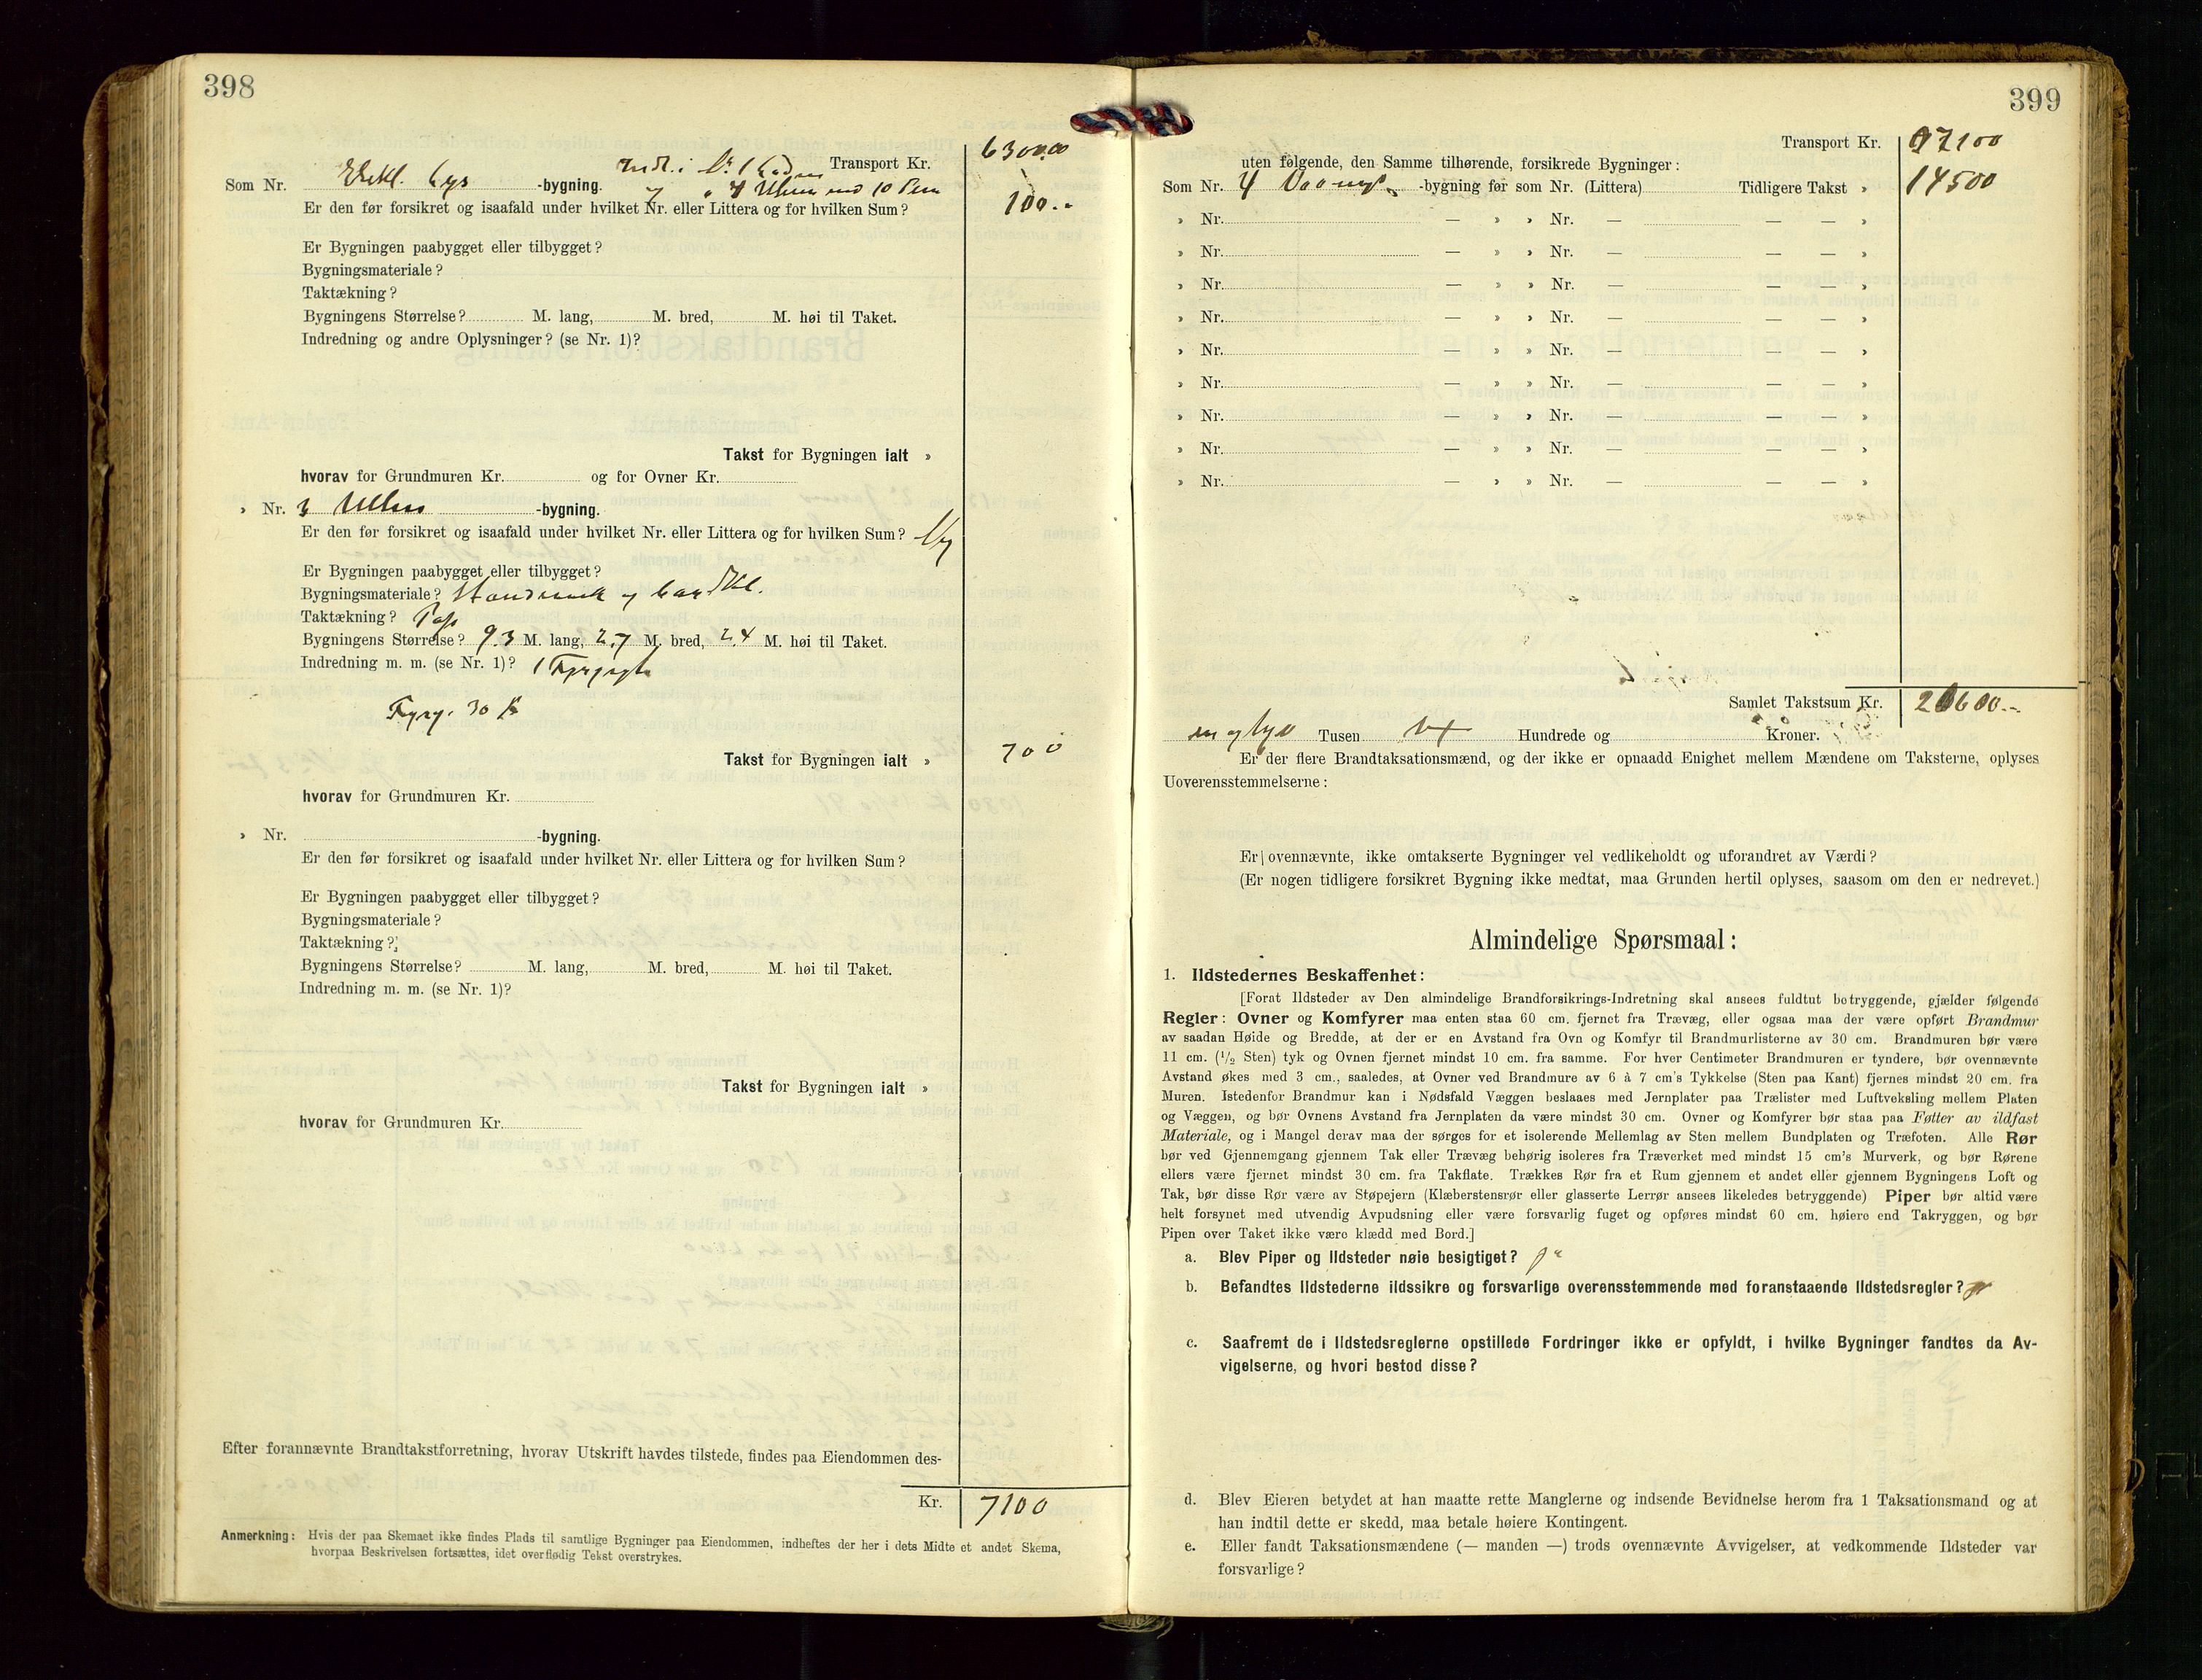 398
Transport Kr. 6300.00
Som Nr. Elekt. Lys -bygning.
100.-
Er den før forsikret og isaafald under hvilket Nr. eller Littera og for hvilken Sum?
Er Bygningen paabygget eller tilbygget?
Bygningsmateriale?
Taktækning?
Bygningens Størrelse? M. lang, M. bred, M. høi til Taket.
Indredning og andre Oplysninger? (se Nr. 1)?
Takst for Bygningen ialt »
hvorav for Grundmuren Kr. og for Ovner Kr.
» Nr. 3 -bygning.
Er den før forsikret og isaafald under hvilket Nr. eller Littera og for hvilken Sum? Ny
Er Bygningen paabygget eller tilbygget?
Bygningsmateriale?
Taktækning? Papp
Bygningens Størrelse? 9.3 M. lang, 2.7 M. bred, 2.4 M. høi til Taket.
Indredning m. m. (se Nr. 1)? 1
30 Kr
Takst for Bygningen ialt » 700
hvorav for Grundmuren Kr.
» Nr. -bygning.
Er den før forsikret og isaafald under hvilket Nr. eller Littera og for hvilken Sum?
Er Bygningen paabygget eller tilbygget?
Bygningsmateriale?
Taktækning?
Bygningens Størrelse? M. lang, M. bred, M. høi til Taket.
Indredning m. m. (se Nr. 1)?
Takst for Bygningen ialt »
hvorav for Grundmuren Kr.
Efter forannævnte Brandtakstforretning, hvorav Utskrift havdes tilstede, findes paa Eiendommen des-
Kr. 7100
Anmerkning: Hvis der paa Skemaet ikke findes Plads til samtlige Bygninger paa Eiendommen, indheftes der her i dets Midte et andet Skema,
hvorpaa Beskrivelsen fortsættes, idet overflødig Tekst overstrykes.
399
Transport Kr. 7100
uten følgende, den Samme tilhørende, forsikrede Bygninger:
Som Nr. 4 -bygning før som Nr. (Littera) Tidligere Takst » 14500
» Nr. — » » Nr. — — — »
» Nr. — » » Nr. — — — »
» Nr. — » » Nr. — — — »
» Nr. — » » Nr. — — — »
» Nr. — » » Nr. — — — »
» Nr. — » » Nr. — — — »
» Nr. — » » Nr. — — — »
» Nr. — » » Nr. — — — »
» Nr. — » » Nr. — — — »
Samlet Takstsum Kr. 21600.-
en og tyve Tusen Hundrede og Kroner.
Er der flere Brandtaksationsmænd, og der ikke er opnaadd Enighet mellem Mændene om Taksterne, oplyses
Uoverensstemmelserne:
Er ovennævnte, ikke omtakserte Bygninger vel vedlikeholdt og uforandret av Værdi?
(Er nogen tidligere forsikret Bygning ikke medtat, maa Grunden hertil oplyses, saasom om den er nedrevet.)
Almindelige Spørsmaal:
1. Ildstedernes Beskaffenhet:
[Forat Ildsteder av Den almindelige Brandforsikrings-Indretning skal ansees fuldtut betryggende, gjælder følgende
Regler: Ovner og Komfyrer maa enten staa 60 cm. fjernet fra Trævæg, eller ogsaa maa der være opført Brandmur
av saadan Høide og Bredde, at der er en Avstand fra Ovn og Komfyr til Brandmurlisterne av 30 cm. Brandmuren bør være
11 cm. (1/2 Sten) tyk og Ovnen fjernet mindst 10 cm. fra samme. For hver Centimeter Brandmuren er tyndere, bør ovennævnte
Avstand økes med 3 cm., saaledes, at Ovner ved Brandmure av 6 à 7 cm's Tykkelse (Sten paa Kant) fjernes mindst 20 cm. fra
Muren. Istedenfor Brandmur kan i Nødsfald Væggen beslaaes med Jernplater paa Trælister med Luftveksling mellem Platen
og Væggen, og bør Ovnens Avstand fra Jernplaten da være mindst 30 cm. Ovner og Komfyrer bør staa paa Føtter av ildfast
Materiale, og i Mangel derav maa der sørges for et isolerende Mellemlag av Sten mellem Bundplaten og Træfoten. Alle Rør
bør ved Gjennemgang gjennem Tak eller Trævæg behørig isoleres fra Træverket med mindst 15 cm's Murverk, og bør Rørene
ellers være fjernet mindst 30 cm. fra Takflate. Trækkes Rør fra et Rum gjennem et andet eller gjennem Bygningens Loft og
Tak, bør disse Rør være av Støpejern (Klæberstensrør eller glasserte Lerrør ansees likeledes betryggende) Piper bør altid være
helt forsynet med utvendig Avpudsning eller være forsvarlig fuget og opføres mindst 60 cm. høiere end Takryggen, og bør
Pipen over Taket ikke være klædd med Bord.]
a. Blev Piper og Ildsteder nøie besigtiget? ja
b. Befandtes Ildstederne ildssikre og forsvarlige overensstemmende med foranstaaende Ildstedsregler? ja
c. Saafremt de i Ildstedsreglerne opstillede Fordringer ikke er opfyldt, i hvilke Bygninger fandtes da Av-
vigelserne, og hvori bestod disse?
d. Blev Eieren betydet at han maatte rette Manglerne og indsende Bevidnelse herom fra 1 Taksationsmand og at
han indtil dette er skedd, maa betale høiere Kontingent.
e. Eller fandt Taksationsmændene (— manden —) trods ovennævnte Avvigelser, at vedkommende Ildsteder var
forsvarlige?